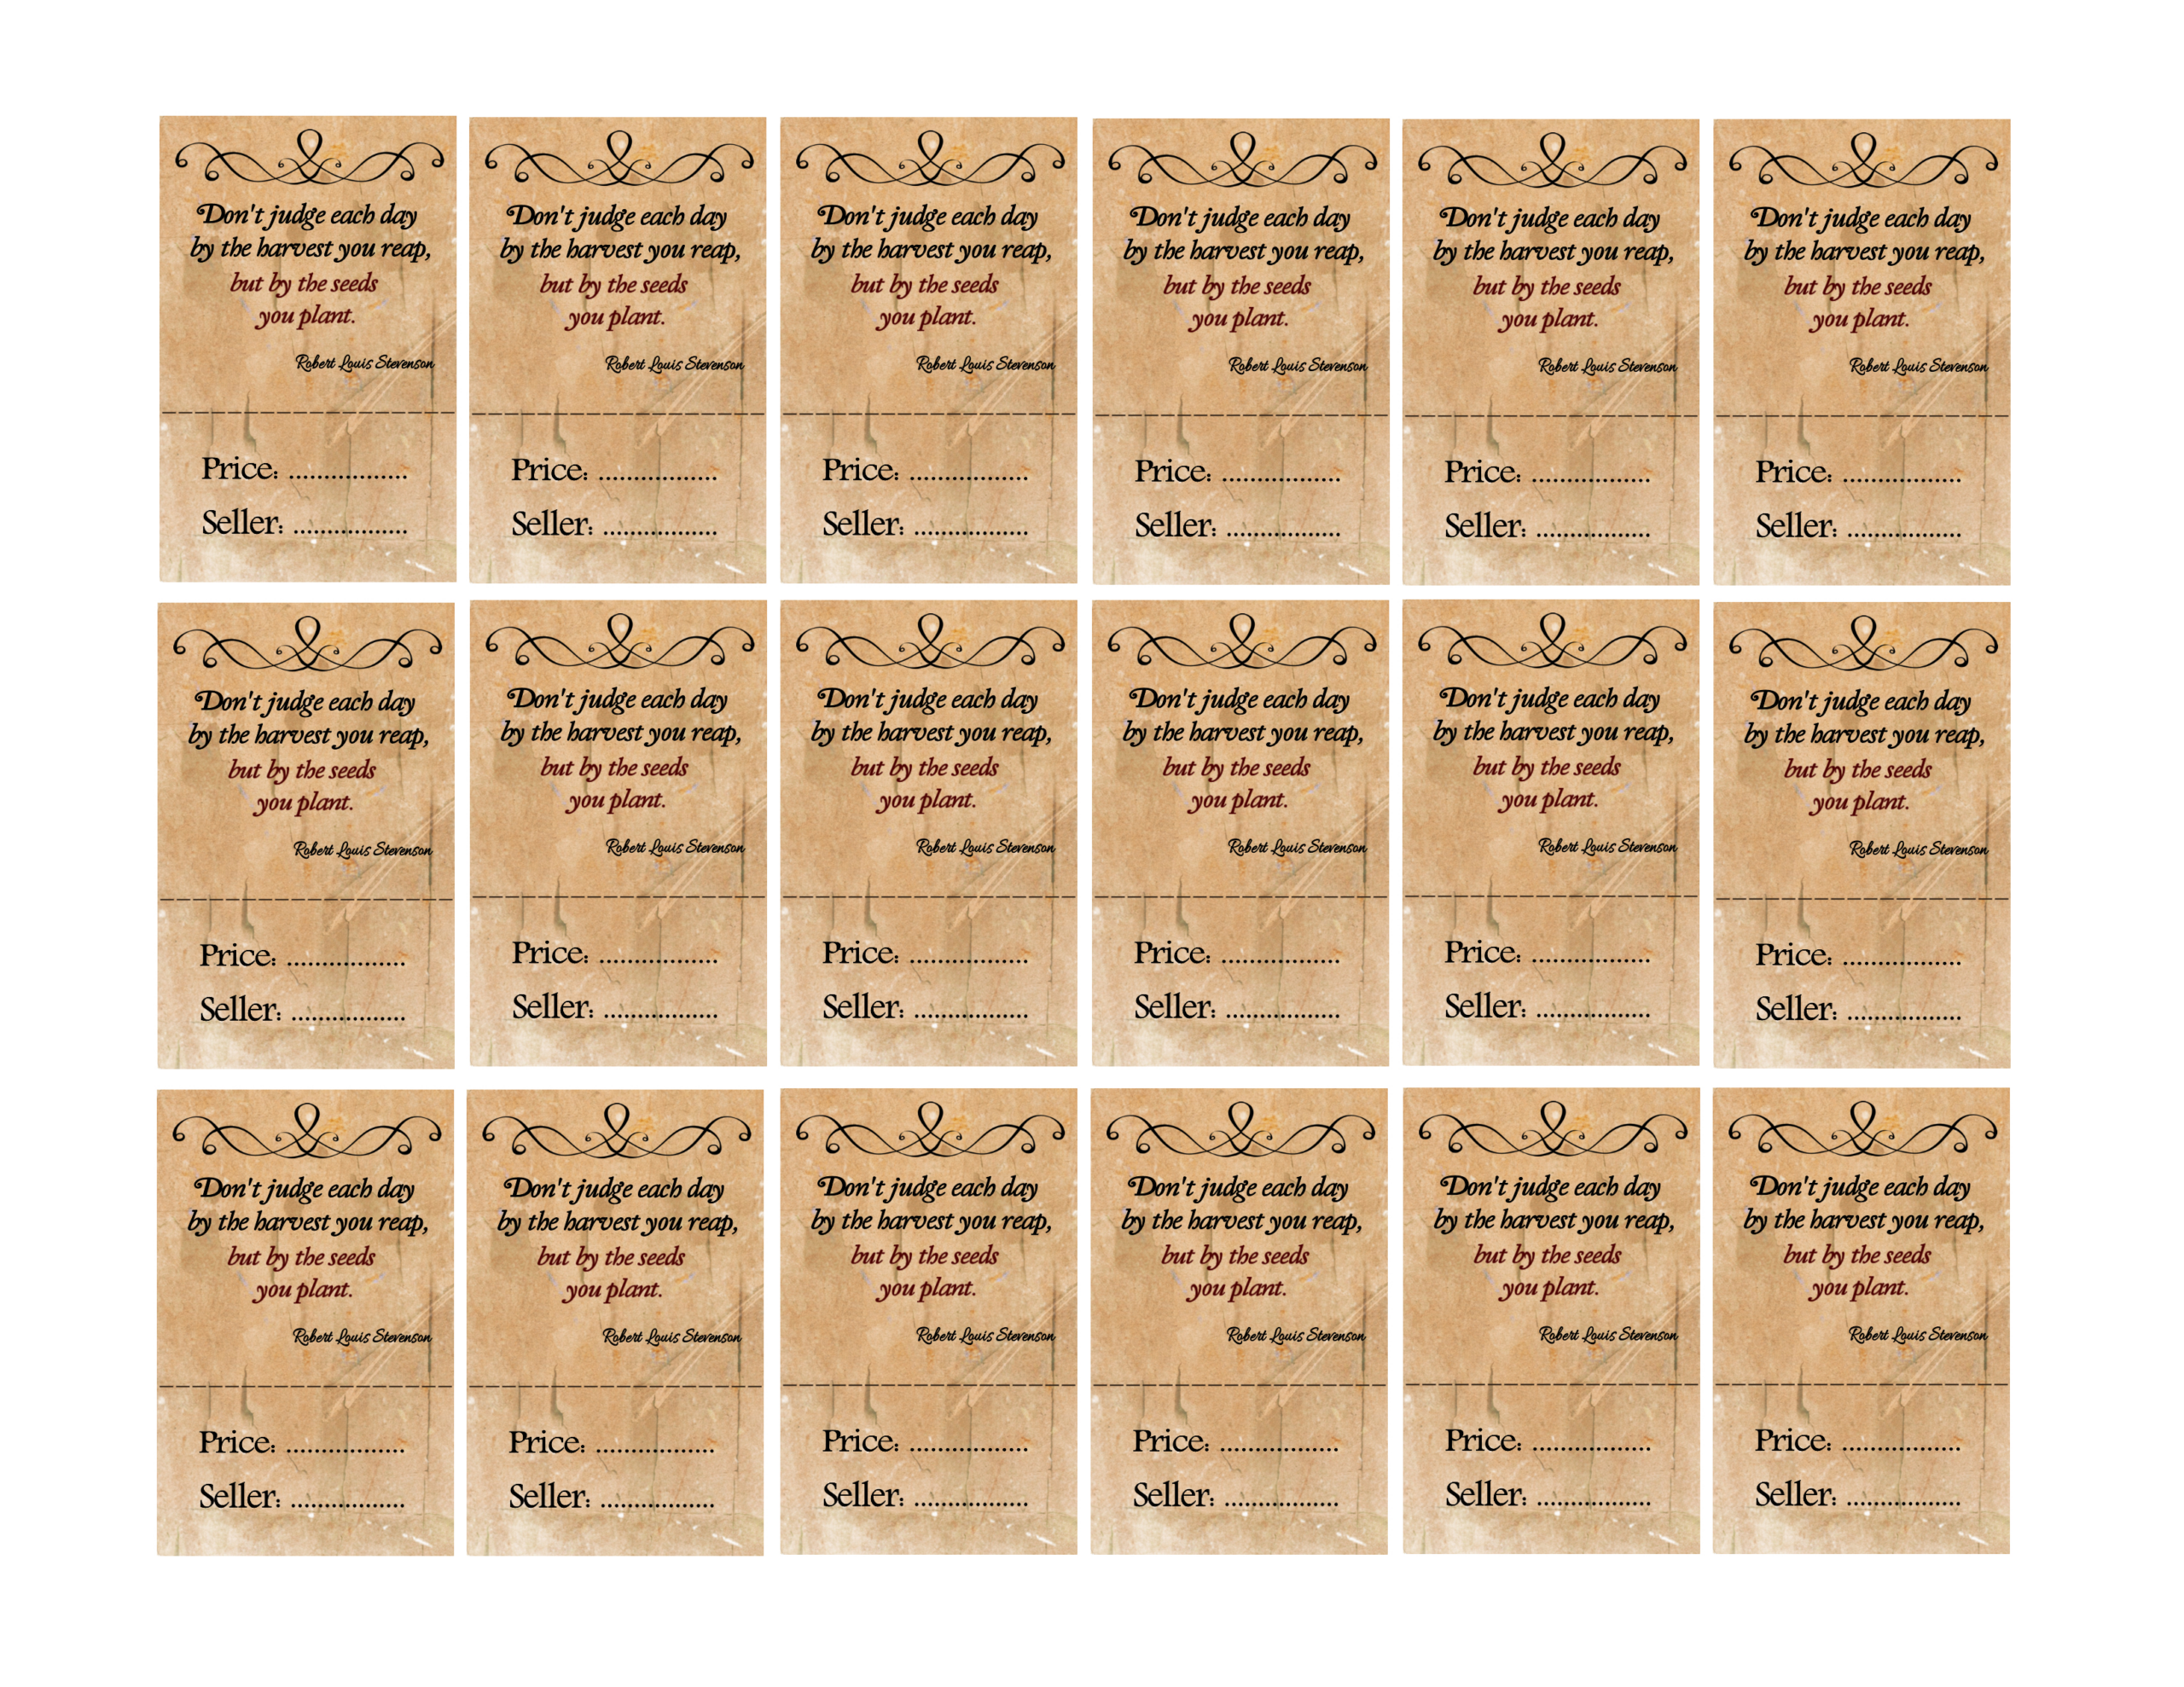 Don't judge each day
by the harvest you reap,
but by the seeds
you plant.
Robert Louis Stevenson
Price: .................
Seller: .................
Don't judge each day
by the harvest you reap,
but by the seeds
you plant.
Robert Louis Stevenson
Price: .................
Seller: .................
Don't judge each day
by the harvest you reap,
but by the seeds
you plant.
Robert Louis Stevenson
Price: .................
Seller: .................
Don't judge each day
by the harvest you reap,
but by the seeds
you plant.
Robert Louis Stevenson
Price: .................
Seller: .................
Don't judge each day
by the harvest you reap,
but by the seeds
you plant.
Robert Louis Stevenson
Price: .................
Seller: .................
Don't judge each day
by the harvest you reap,
but by the seeds
you plant.
Robert Louis Stevenson
Price: .................
Seller: .................
Don't judge each day
by the harvest you reap,
but by the seeds
you plant.
Robert Louis Stevenson
Price: .................
Seller: .................
Don't judge each day
by the harvest you reap,
but by the seeds
you plant.
Robert Louis Stevenson
Price: .................
Seller: .................
Don't judge each day
by the harvest you reap,
but by the seeds
you plant.
Robert Louis Stevenson
Price: .................
Seller: .................
Don't judge each day
by the harvest you reap,
but by the seeds
you plant.
Robert Louis Stevenson
Price: .................
Seller: .................
Don't judge each day
by the harvest you reap,
but by the seeds
you plant.
Robert Louis Stevenson
Price: .................
Seller: .................
Don't judge each day
by the harvest you reap,
but by the seeds
you plant.
Robert Louis Stevenson
Price: .................
Seller: .................
Don't judge each day
by the harvest you reap,
but by the seeds
you plant.
Robert Louis Stevenson
Price: .................
Seller: .................
Don't judge each day
by the harvest you reap,
but by the seeds
you plant.
Robert Louis Stevenson
Price: .................
Seller: .................
Don't judge each day
by the harvest you reap,
but by the seeds
you plant.
Robert Louis Stevenson
Price: .................
Seller: .................
Don't judge each day
by the harvest you reap,
but by the seeds
you plant.
Robert Louis Stevenson
Price: .................
Seller: .................
Don't judge each day
by the harvest you reap,
but by the seeds
you plant.
Robert Louis Stevenson
Price: .................
Seller: .................
Don't judge each day
by the harvest you reap,
but by the seeds
you plant.
Robert Louis Stevenson
Price: .................
Seller: .................